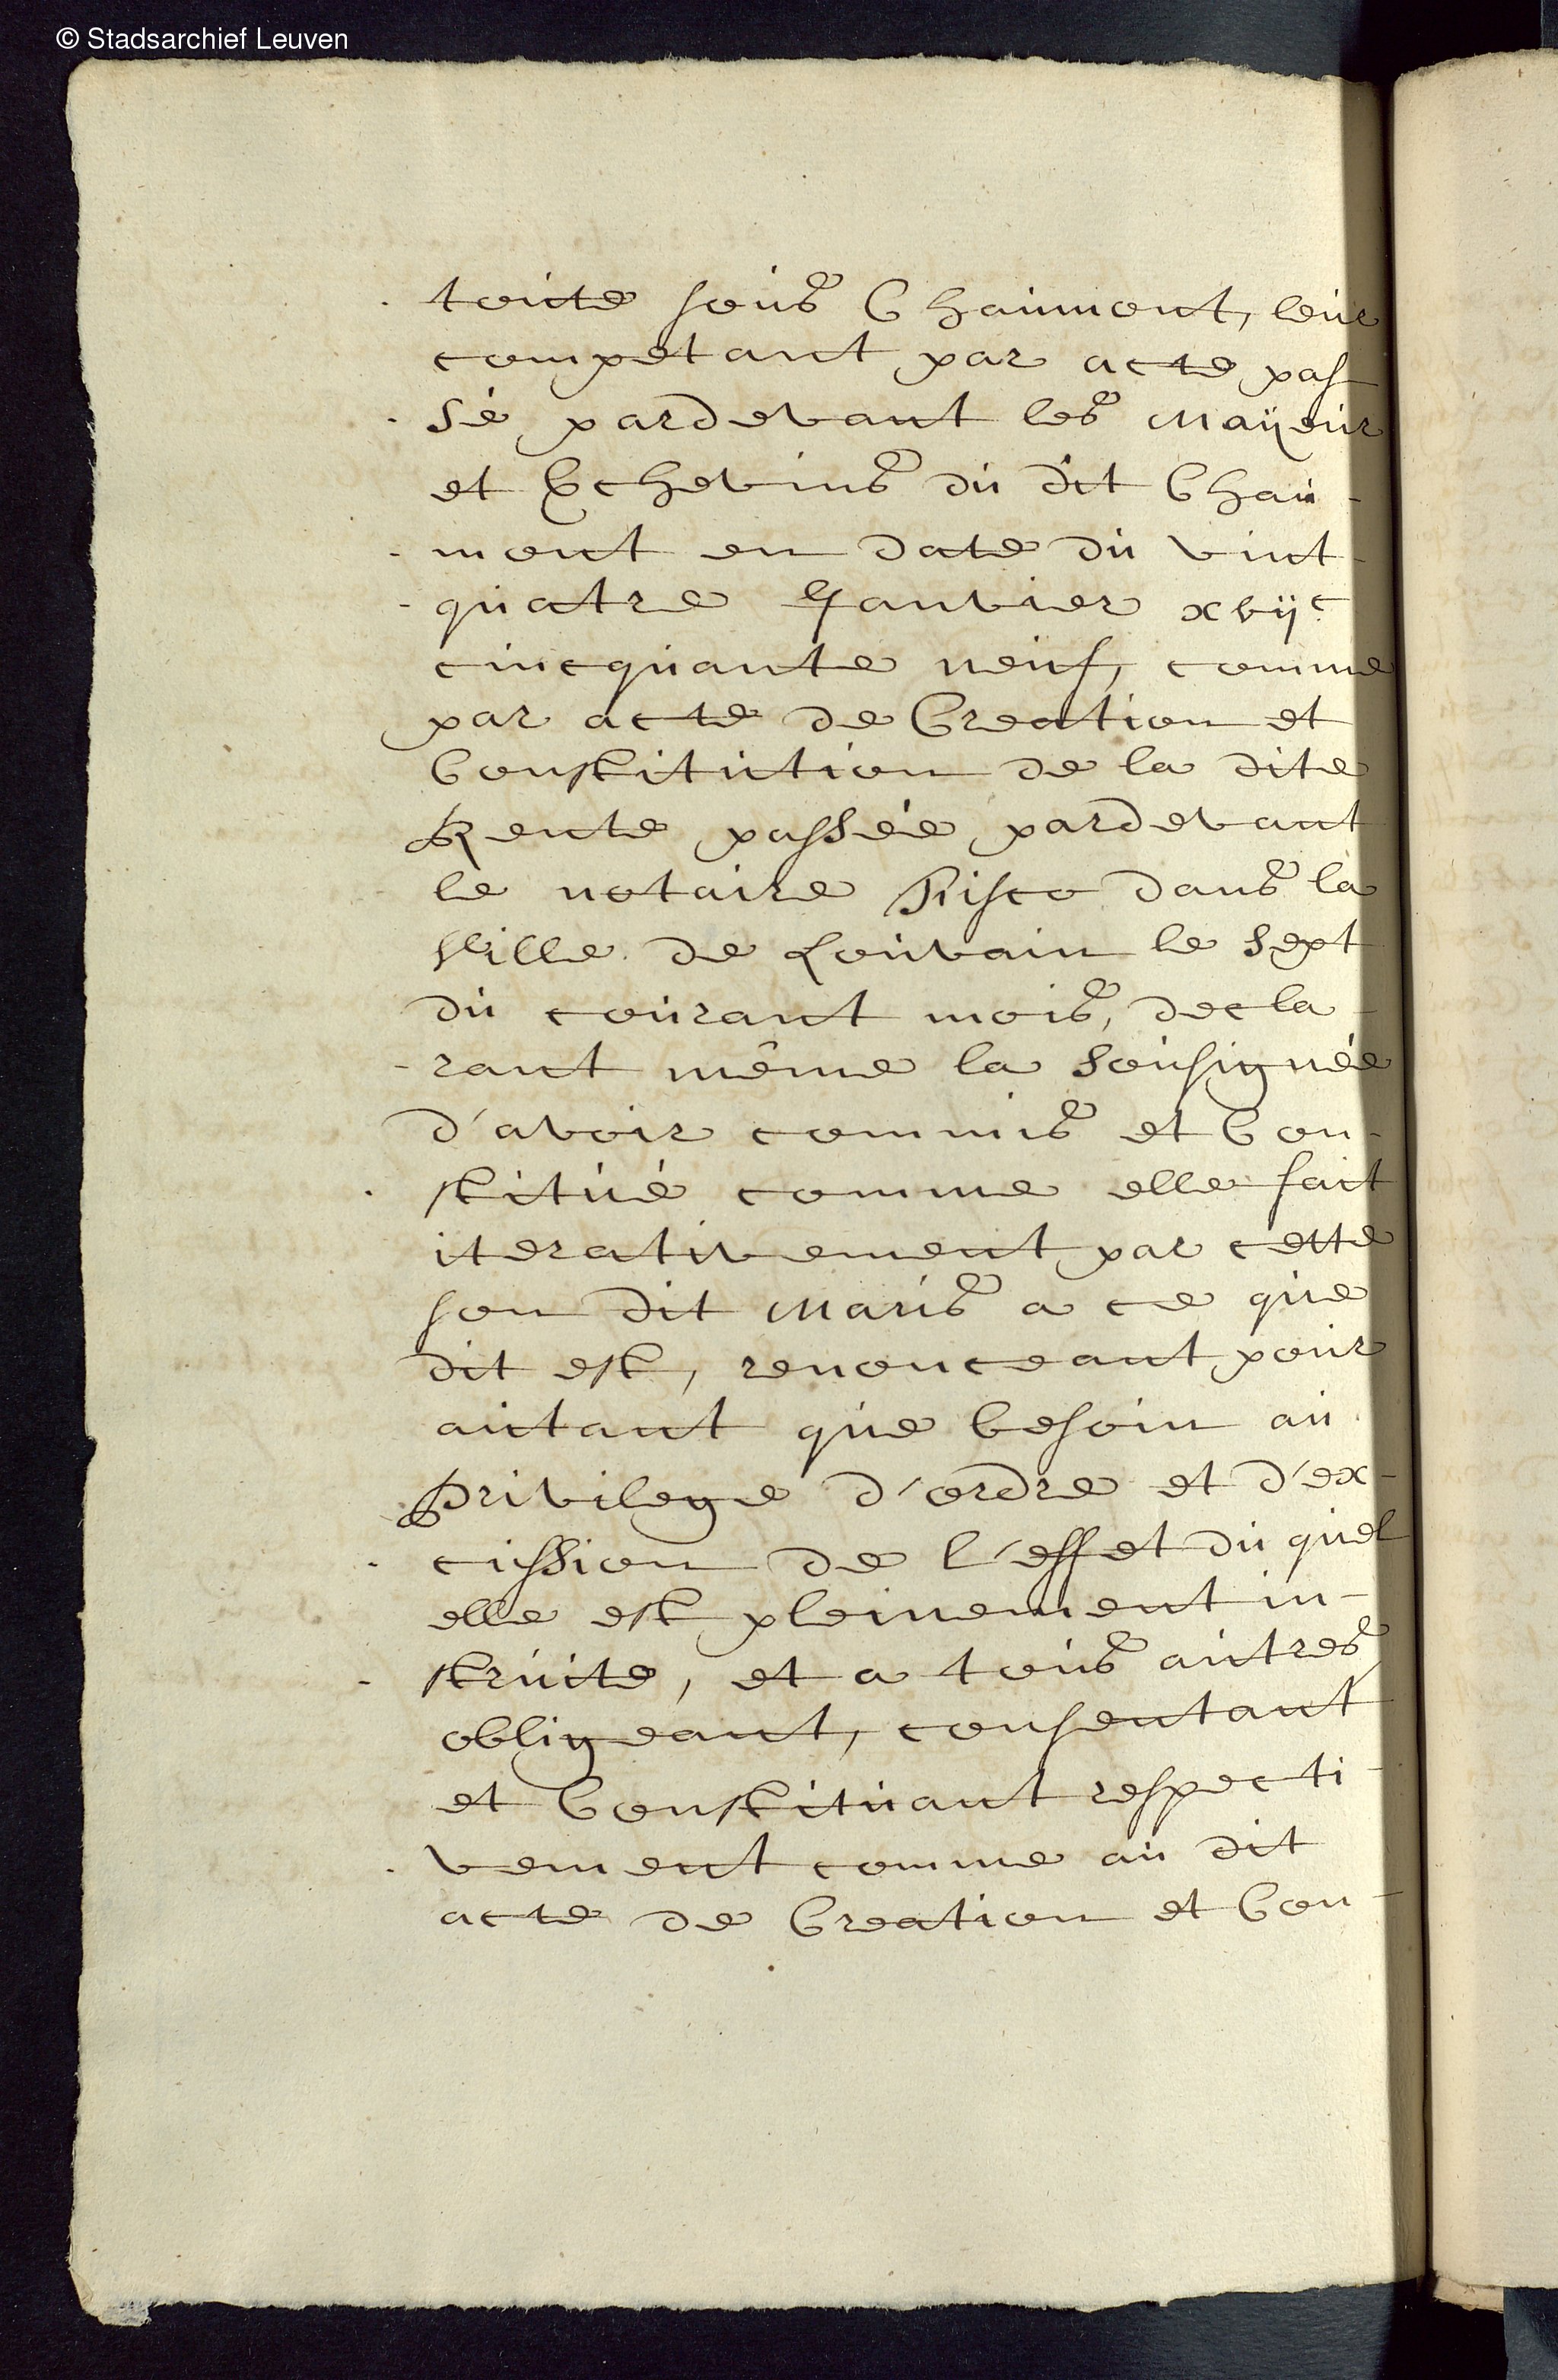 © Stadsarchief Leuven
toute sous Chaumont, leur
competant par acte pas
sé pardevant les Maÿeur
et Echevins du dit Chau-
mont en date du vint-
-quatre Janvier xvijc
cincquante neuf, comme
par acte de Creation et
Constitution de la dite
Rente passée pardevant
le notaire Fisco dans la
Ville de Louvain le sept
du courant mois, decla-
-rant même la sousignée
d'avoir commis et Con-
stitué comme elle fait
iterativement par cette
son dit Maris a ce que
dit est, renonceant pour
autant que besoin au
privilege d'ordre et d'ex-
cussion de l'effet du quel
elle est pleinement in-
struite, et a tous autres
obligeant, consentant
et Constituant respecti-
vement comme au dit
acte de Creation et Con-